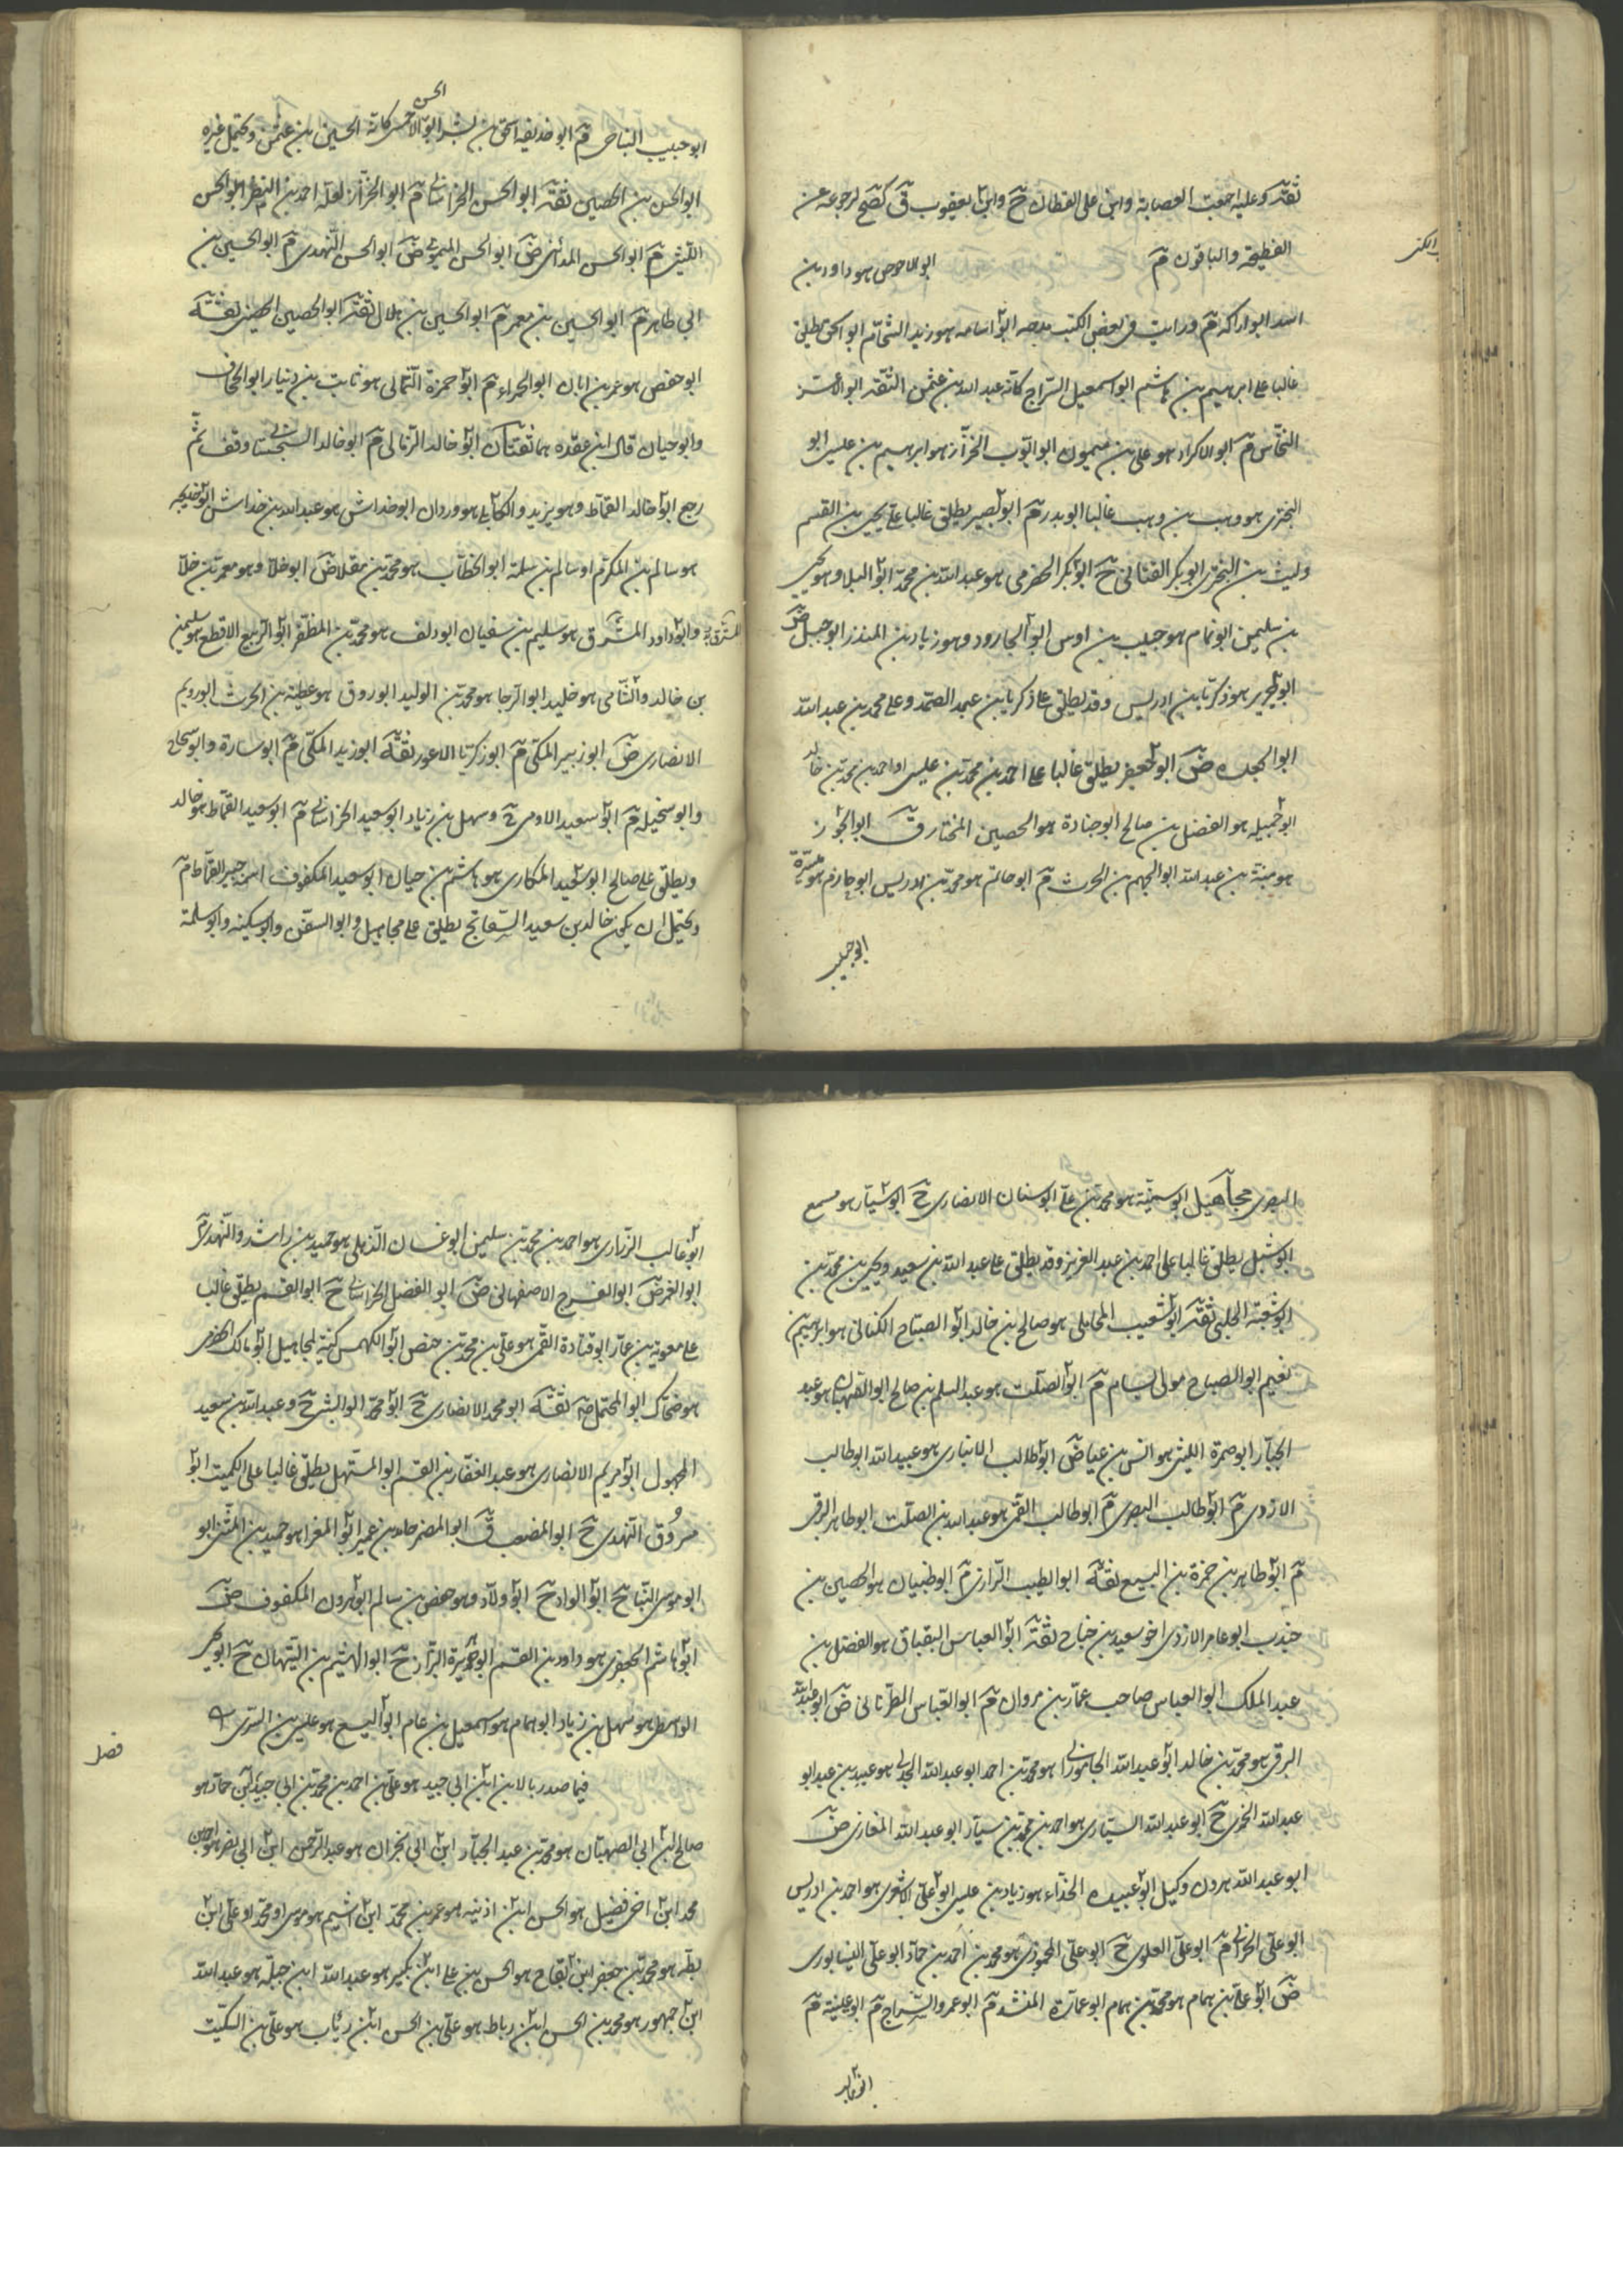 ثقة وعليه اجمعت العصابة وابن على القطان ح وابن يعقوب ق كصح لرجوعه عن
الفطحية والباقون م ابو الاحوص هو داود بن
اسد ابو اراكه م ورايت في بعض الكتب مدحه ابو اسامه هو زيد الشحام ابو اسحق يطلق
غالبا على ابرهيم بن هاشم ابو اسمعيل السراج كانه عبد الله بن عثمن الثقة ابو الاغر
النخاس م ابو الاكراد هو على بن ميمون ابو ايوب الخزاز هو ابرهيم بن عيسى ابو
البختري هو وهب بن وهب غالبا ابو بدر م ابو بصير يطلق غالبا على يحيى بن القسم
وليث بن البختري ابو بكر القناني ح ابو بكر الحضرمي هو عبد الله بن محمد ابو البلاد هو يحيى
بن سليمن ابو تمام هو حبيب بن اوس ابو الجارود وهو زياد بن المنذر ابو جبل ض
ابو جرير هو زكريا بن ادريس وقد يطلق على زكريا بن عبد الصمد وعلى محمد بن عبد الله
ابو الجعد ض ابو جعفر يطلق غالبا على احمد بن محمد بن عيسى او احمد بن محمد بن خالد
ابو جميله هو المفضل بن صالح ابو جنادة هو الحصين المخارق ق ابو الجوزا
هو منبة بن عبد الله ابو الجهم بن الحرث م ابو حاتم هو محمد بن ادريس ابو حازم هو ميسرة
ابو حبيب
ابو حبيب النباحي م ابو حذيفه اسحق بن بشر ابو الاحسن كانه الحسين بن عثمن ويحتمل غيره
الحسن
ابو الحسن بن الحصين ثقة ابو الحسن الخراساني م ابو الخزاز لعله احمد بن النضر ابو الحسن
الليثي م ابو الحسن المدائني ض ابو الحسن الميموني ض ابو الحسن النهدي م ابو الحسين بن
ابي طاهر م ابو الحسين بن معمر م ابو الحسين بن هلال ثقة ابو الحصين الحصيني ثقة
ابو حفص هو عمر بن ابان ابو الحمراء م ابو حمزة الثمالي هو ثابت بن دينار ابو الجحاف
وابو حيان قال ابن عقده هما ثقتان ابو خالد الزبالي م ابو خالد السجستاني وقف ثم
رجع ابو خالد القماط وهو يزيد والكابلي هو وردان ابو خداش هو عبد الله بن خداش ابو خديجه
هو سالم بن المكرم او سالم بن سلمة ابو الخطاب هو محمد بن مقلاص ابو خلاد هو معمر بن خلاد
وابو داود المسترق هو سليم بن سفيان ابو دلف هو محمد بن المظفر ابو الربيع الاقطع هو سليمن
بن خالد والشامي هو خليد ابو الرجا هو محمد بن الوليد ابو روق هو عطية بن الحرث ابو رويم
الانصاري ض ابو زبير المكي م ابو زكريا الاعور ثقة ابو زيد المكي م ابو سارة وابو سحاج
وابو سخيله م ابو سعيد الادمي ح وسهل بن زياد ابو سعيد الخراساني م ابو سعيد القماط هو خالد
ويطلق على صالح ابو سعيد المكاري هو هاشم بن حيان ابو سعيد المكفوف اسمه القماط م
ويحتمل ان يكون خالد بن سعيد السفاتج يطلق على مجاهيل وابو السفن وابو سكينه وابو سلمة
البصري مجاهيل ابو سمينة هو محمد بن على ابو سنان الانصاري ح ابو سيار هو مسمع
ابو شبل يطلق غالبا على احمد بن عبد العزيز وقد يطلق على عبد الله بن سعيد ويحيى بن محمد بن
ابو شعبة الحلبي ثقة ابو شعيب المحاملي هو صالح بن خالد ابو الصباح الكناني هو ابرهيم بن
نعيم ابو الصباح مولى بسام م ابو الصلت هو عبد السلم بن صالح ابو الصهبان هو عبد
الجبار ابو ضمرة الليثي هو انس بن عياض ابو طالب الانباري هو عبيد الله ابو طالب
الازدي م ابو طالب البصري م ابو طالب القمي هو عبد الله بن الصلت ابو طاهر البرقي
م ابو طاهر بن حمزة بن اليسع ثقة ابو الطيب الرازي م ابو ظبيان هو الحصين بن
جندب ابو عامر الازدي اخو سعيد بن جناح ثقة ابو العباس البقباق هو الفضل بن
عبد الملك ابو العباس صاحب عمار بن مروان م ابو العباس الطرناني ض ابو عبد الله
البرقي هو محمد بن خالد ابو عبد الله الجاموراني هو محمد بن احمد ابو عبد الله الجدلي هو عبيد بن عبد ابو
عبد الله الخمري ح ابو عبد الله السياري هو احمد بن محمد بن سيار ابو عبد الله المغازي ض
ابو عبد الله هرون وكيل ابو عبيده الحذاء هو زياد بن عيسى ابو على الاشعري هو احمد بن ادريس
ابو على الخزاني م ابو على العلوي ح ابو على المحمودي هو محمد بن احمد بن حماد ابو على النيسابوري
ض ابو على بن همام هو محمد بن همام ابو عمارة المنشد م ابو عمرو السراج م ابو عيينة م
ابو غالب
ابو غالب الزراري هو احمد بن محمد بن سليمن ابو غسان الذهلي هو حميد بن راشد والنهدي م
ابو الغمر ض ابو الفرج الاصفهاني ض ابو الفضل الخراساني ح ابو القسم يطلق غالبا
على معوية بن عمار ابو قتادة القمي هو على بن محمد بن حفص ابو الكهمس كنية لمجاهيل ابو مالك الحضرمي
هو ضحاك ابو المحتمل ض ثقة ابو محمد الانصاري ح ابو محمد الوابشي ح وعبد الله بن سعيد
المجهول ابو مريم الانصاري هو عبد الغفار بن القسم ابو المستهل يطلق غالبا على الكميت ابو
مسروق النهدي ح ابو المضعب ق ابو المضر حامد بن عمير ابو المغرا هو حميد بن المثنى ابو
ابو موسى البناح ابو الوادح ابو ولاد وهو حفص بن سالم ابو هرون المكفوف ض
ابو هاشم الجعفري هو داود بن القسم ابو هريرة البزاز ح ابو الهيثم بن التيهان ح ابو يحيى
الواسطي هو سهل بن زياد ابو همام هو اسمعيل بن همام ابو اليسع هو عيسى بن السري
فصل
فيما صدر بالابن ابن ابي جيد هو على بن احمد بن محمد بن ابي جيد ابن حماد هو
صالح ابن ابي الصهبان هو محمد بن عبد الجبار ابن ابي نجران هو عبد الرحمن ابن ابي نصر هو احمد بن
محمد ابن اخي فضيل هو الحسن ابن اذينه هو عمر بن محمد ابن اشيم هو موسى او محمد او على ابن
بطه هو محمد بن جعفر ابن بقاح هو الحسن بن على ابن بكير هو عبد الله ابن جبله هو عبد الله
ابن جمهور هو محمد بن الحسن ابن رباط هو على بن الحسن ابن رئاب هو على بن السكيت